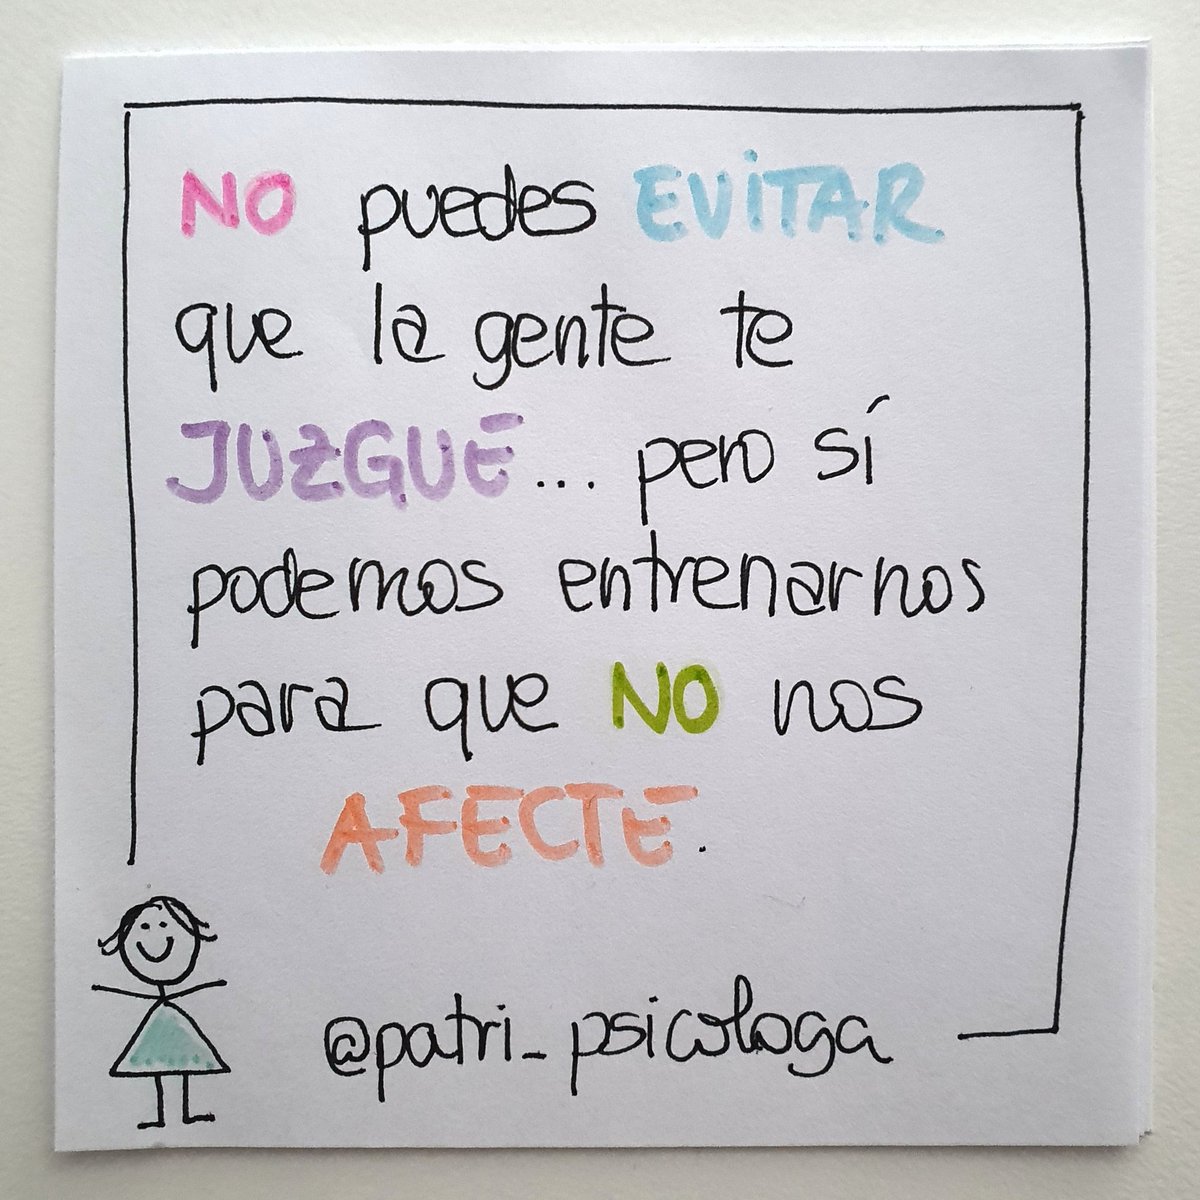 NO puedes EVITAR
que la gente te
JUZGUE... pero sí
podemos entrenarnos
para que NO nos
AFECTE.
@patri_psicologa